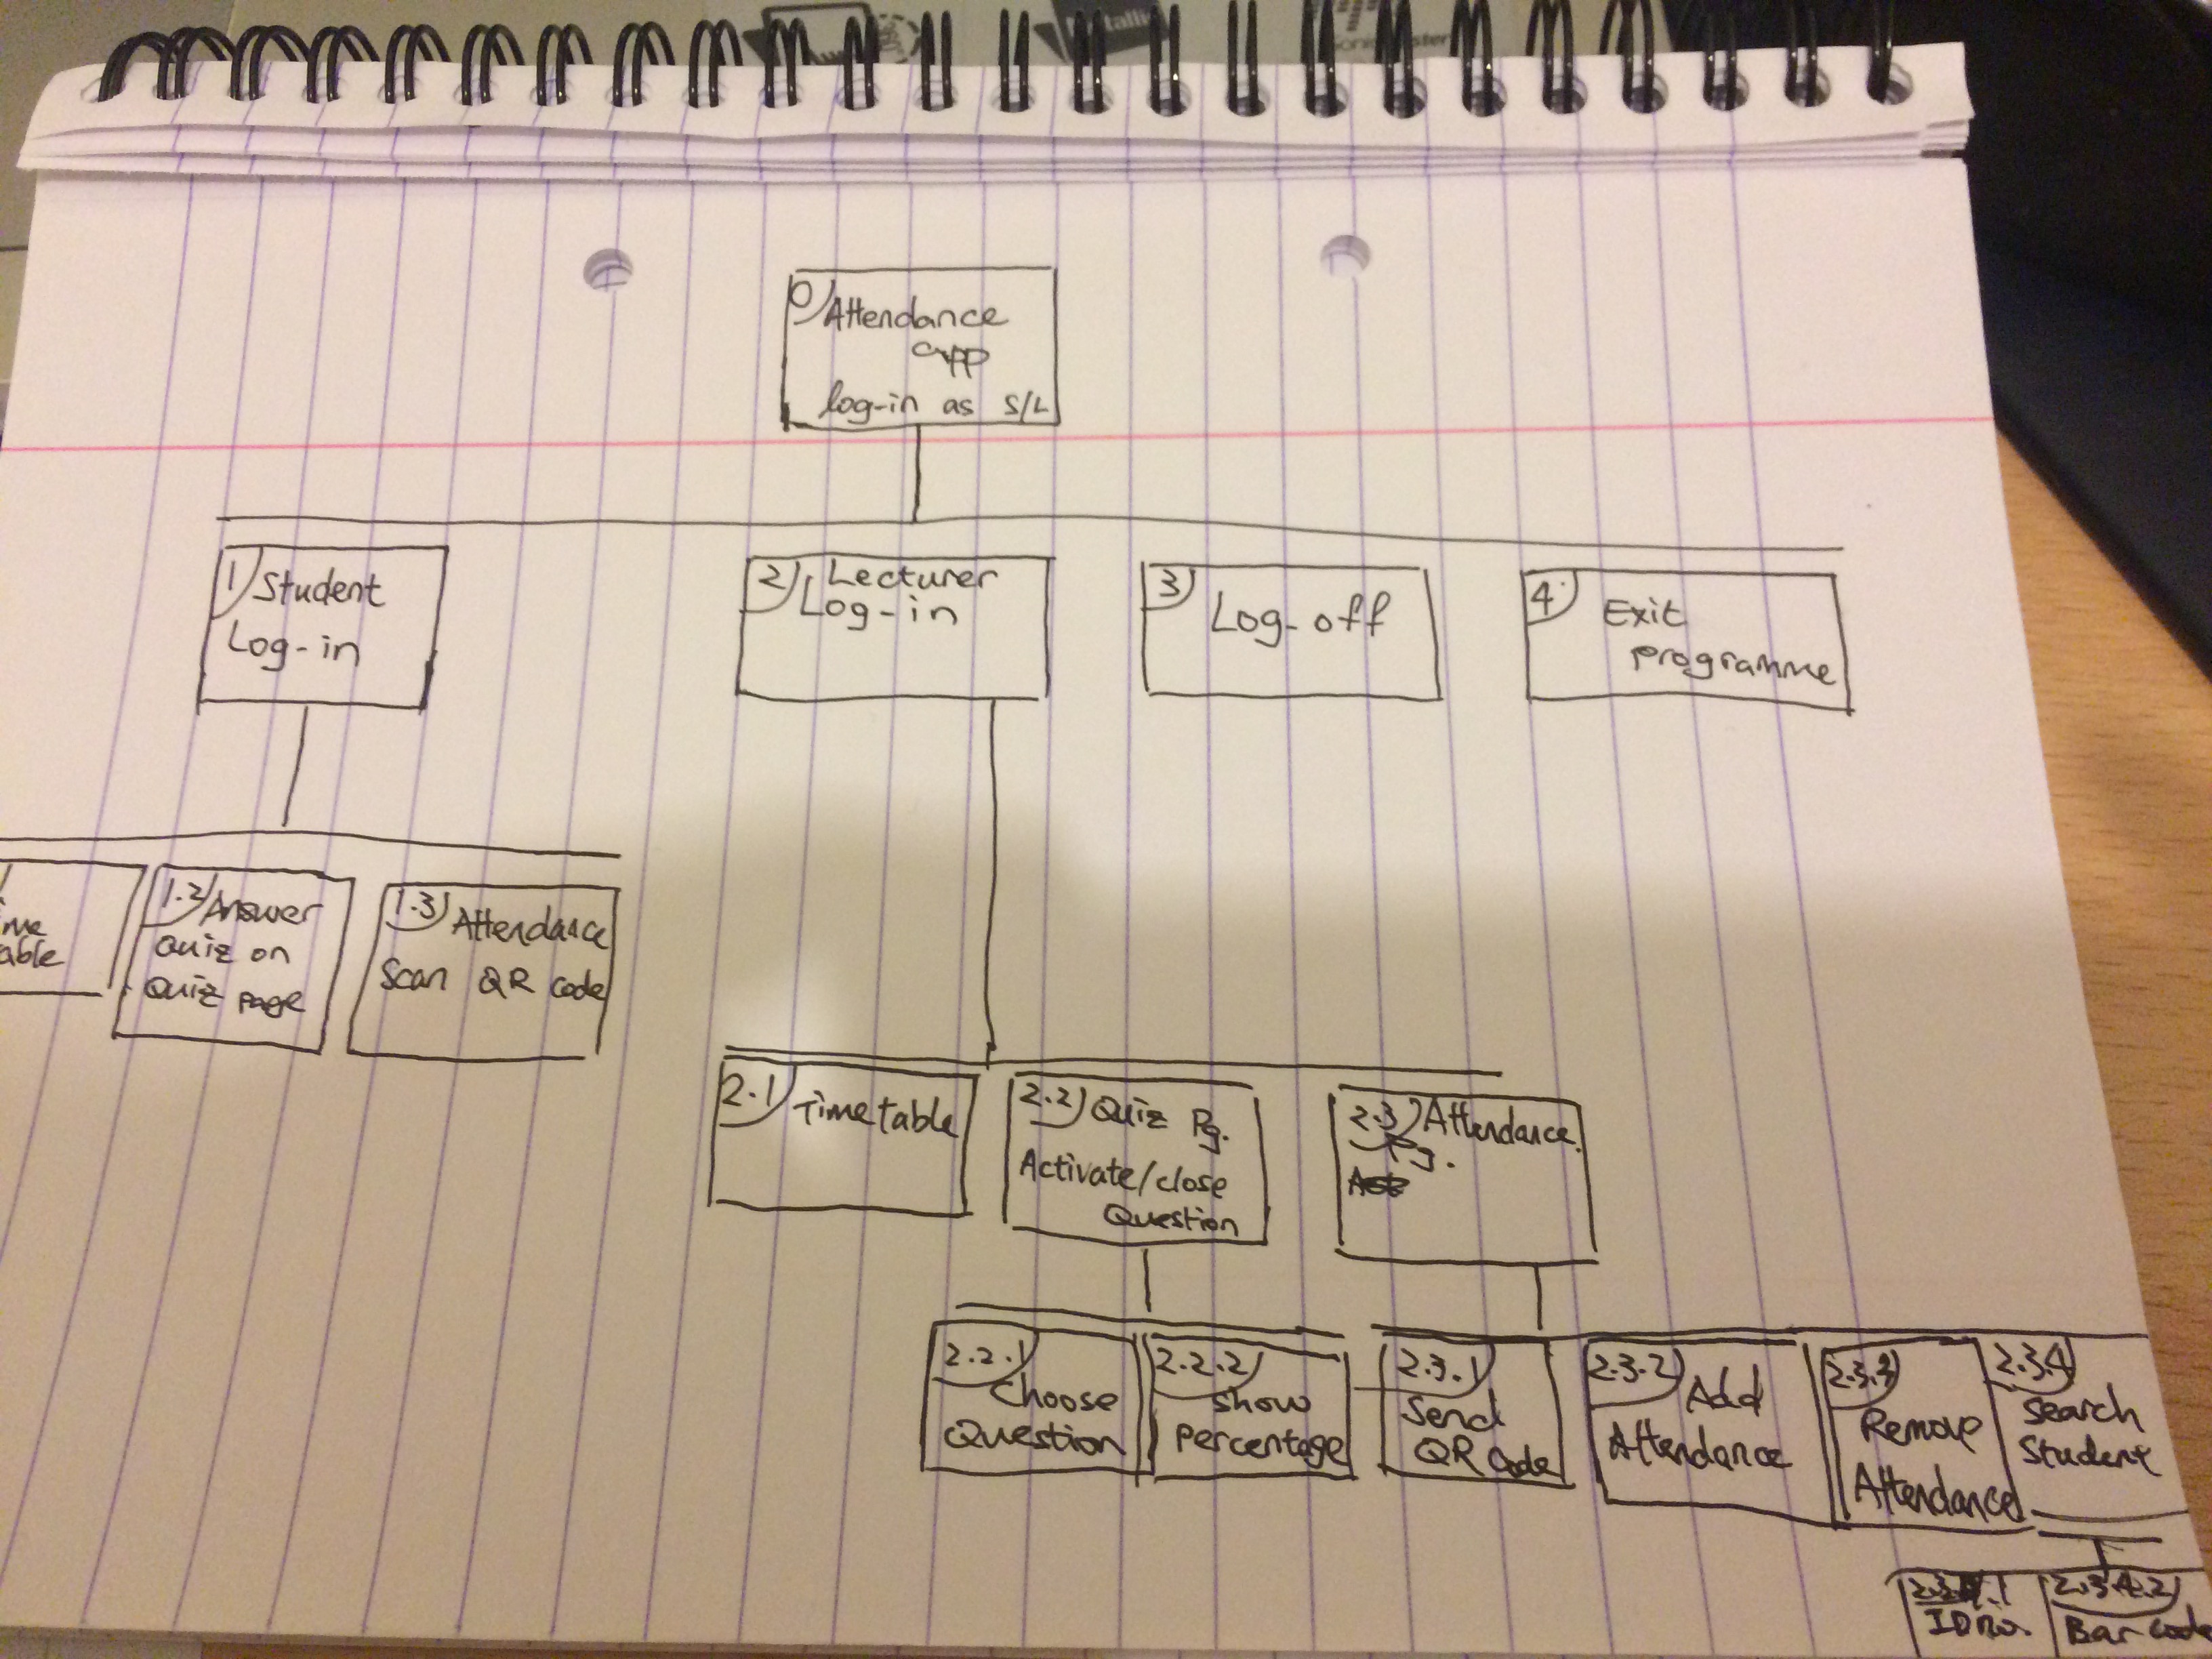 0 Attendance
app
log-in as S/L
1 Student
Log-in
2 Lecturer
Log-in
3
Log-off
4
Exit
programme
me
able
1.2 Answer
Quiz on
Quiz page
1.3 Attendance
Scan QR code
2.1 Timetable
2.2 Quiz Pg.
Activate/close
Question
2.3 Attendance
Pg.
2.2.1
Choose
Question
2.2.2
Show
Percentage
2.3.1
Send
QR Code
2.3.2 Add
Attendance
2.3.3
Remove
Attendance
2.3.4
Search
Student
2.3.4.1
ID no.
2.3.4.2
Bar code